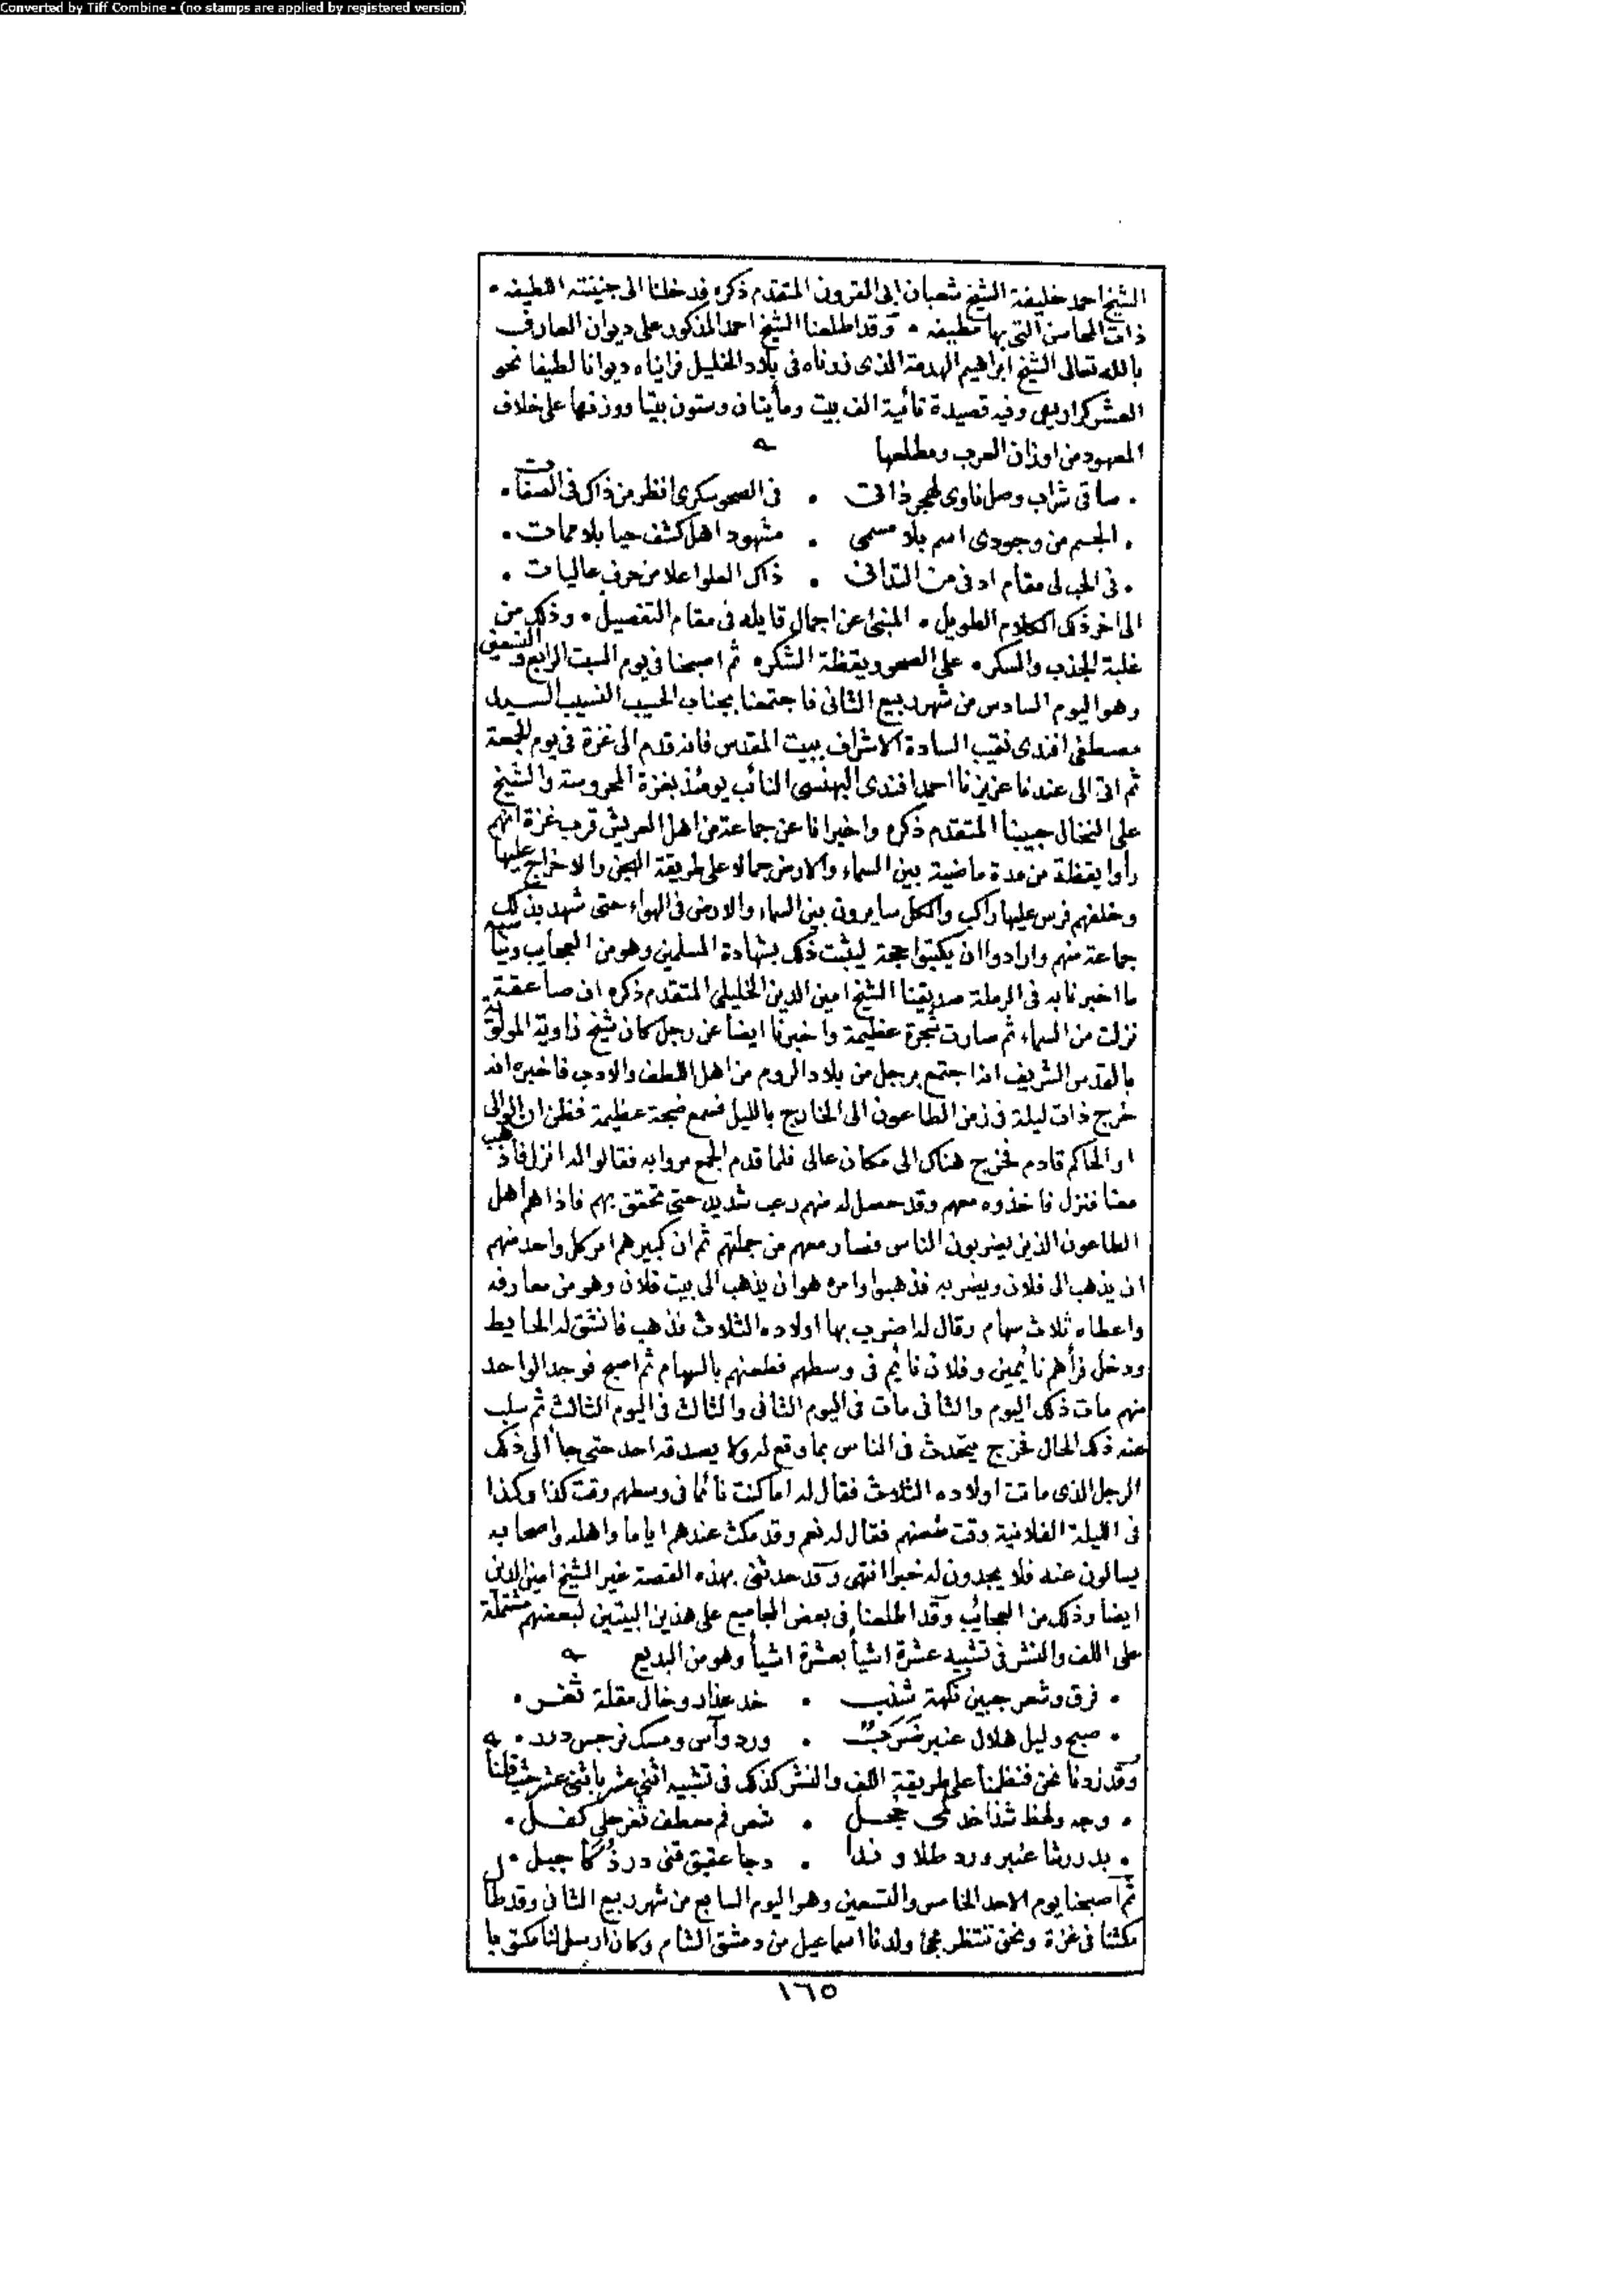 Converted by Tiff Combine - (no stamps are applied by registered version)
الشيخ احمد خليفة الشيخ شعبان ابى القرون المتقدم ذكره فدخلنا الى جنينته اللطيفه •
ذات المحاسن التى بها مطيفه • وقد اطلعنا الشيخ احمد المذكور على ديوان العارف
بالله تعالى الشيخ ابراهيم الهدمة الذى زرناه فى بلاد الخليل فرايناه ديوانا لطيفا نحو
العشر كراريس وفيه قصيدة تائية الف بيت ومأيتان وستون بيتا ووزنها على خلاف
المعهود من اوزان العرب ومطلعها
• ساقى شراب وصل ناوى لهجر ذات • فى الصحو سكرى انظر من ذاك فى الصفات •
• الجسم من وجودى اسم بلا مسمى • مشهود اهل كشف حيا بلا ممات •
• فى الحب لى مقام ادنى من التدانى • ذاك العلو اعلا من حرف عاليات •
الى اخر ذلك الكلام الطويل • المبنى عن اجمال قايله فى مقام التفصيل • وذلك من
غلبة الجذب والسكر • على الصحو ويقظة الشكر • ثم اصبحنا فى يوم السبت الرابع والتسعين
وهو اليوم السادس من شهر ربيع الثانى فاجتمعنا بجناب الحسيب النسيب السيد
مصطفى افندى نقيب السادة الاشراف ببيت المقدس فانه قدم الى غزة فى يوم الجمعة
ثم اتى الى عندنا عزيزنا احمد افندى البهنسى النائب يومئذ بغزة المحروسة والشيخ
على النخال حبيبنا المتقدم ذكره واخبرانا عن جماعة من اهل العريش قرب غزة انهم
رأوا يقظة من مدة ماضية بين السماء والارض جمالا على طريقة الهجن والاخراج عليها
وخلفهم فرس عليها راكب والكل سايرون بين السماء والارض فى الهواء حتى شهد بذلك
جماعة منهم وارادوا ان يكتبوا حجة ليثبت ذلك بشهادة المسلمين وهو من العجايب
ما اخبرنا به فى الرملة صديقنا الشيخ امين الدين الخليلى المتقدم ذكره ان صاعقة
نزلت من السماء ثم صارت شجرة عظيمة واخبرنا ايضا عن رجل كان شيخ زاوية المولوية
بالقدس الشريف انه اجتمع برجل من بلاد الروم من اهل اللطف والادب فاخبره انه
خرج ذات ليلة فى زمن الطاعون الى الخارج بالليل فسمع ضجة عظيمة فظن ان الوالى
او الحاكم قادم فخرج هناك الى مكان عالى فلما قدم الجمع مروا به فقالوا له انزل فاذهب
معنا فنزل فاخذوه معهم وقد حصل له منهم رعب شديد حتى تحقق بهم فاذا هم اهل
الطاعون الذين يضربون الناس فسار معهم من جملتهم ثم ان كبيرهم امر كل واحد منهم
ان يذهب الى فلان ويضربه فذهبوا وامره هو ان يذهب الى بيت فلان وهو من معارفه
واعطاه ثلاث سهام وقال له اضرب بها اولاده الثلاث فذهب فانشق له الحايط
ودخل فرأهم نايمين وفلان نايم فى وسطهم فطعنهم بالسهام ثم اصبح فوجد الواحد
منهم مات ذلك اليوم والثانى مات فى اليوم الثانى والثالث فى اليوم الثالث ثم سلب
عنه ذلك الحال فخرج يتحدث فى الناس بما وقع له ولا يصدقه احد حتى جأ الى ذلك
الرجل الذى ماتت اولاده الثلاث فقال له اما كنت نائما فى وسطهم وقت كذا وكذا
فى الليلة الفلانية وقت طعنهم فقال له نعم وقد مكث عندهم اياما واهله واصحابه
يسالون عنه فلا يجدون له خبرا انتهى وقد حدثنى بهذه القصة غير الشيخ امين الدين
ايضا وذلك من العجائب وقد اطلعنا فى بعض المجاميع على هذين البيتين لبعضهم مشتملة
على اللف والنشر فى تشبيه عشرة اشيأ بعشرة اشيأ وهو من البديع
• فرق وشعر جبين نكهة شنب • خد عذار وخال مقلة ثغر •
• صبح وليل هلال عنبر ضرب • ورد وآس ومسك نرجس درر •
وقد زدنا نحن فنظمنا على طريقة اللف والنشر كذلك فى تشبيه اثنى عشر باثنى عشر حيث قلنا
• وجه ولحظ شذا خد لمى خجل • شعر فم معطف ثغر حلى كفل •
• بدر رشا عنبر ورد طلا وندا • دجا عقيق قنى در ذكا جبل •
ثم اصبحنا يوم الاحد الخامس والتسعين وهو اليوم السابع من شهر ربيع الثانى وقد طال
مكثنا فى غزة ونحن ننتظر مجئ ولدنا اسماعيل من دمشق الشام وكان ارسل لنا مكتوبا
١٦٥